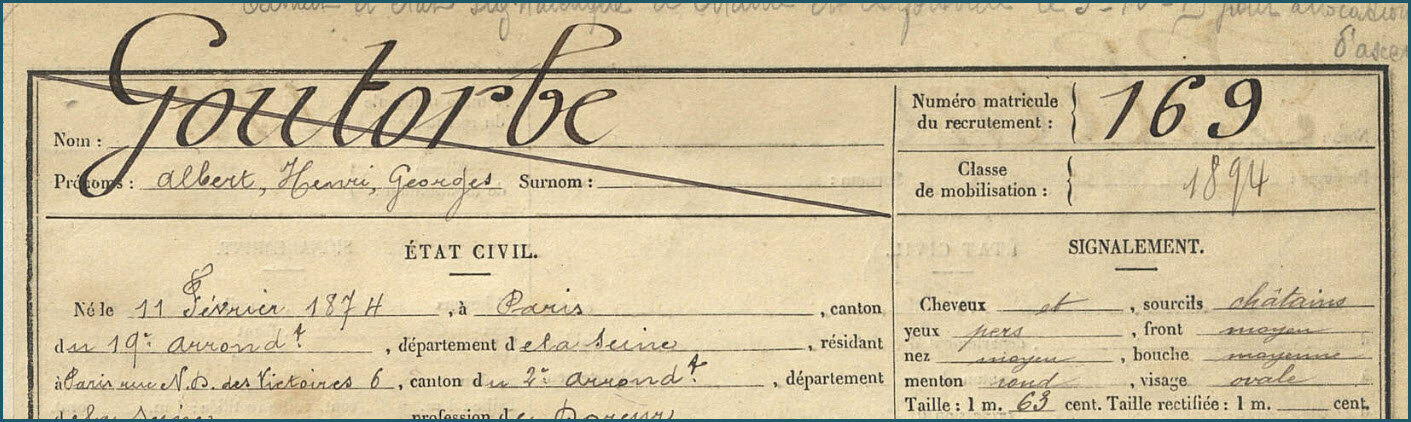 Goutorbe
Nom :
Prénoms : Albert, Henri, Georges, Surnom :
Numéro matricule
du recrutement : 169
Classe
de mobilisation : 1894
ÉTAT CIVIL.
Né le 11 Février 1874, à Paris, canton
du 19e arrondt, département de la Seine, résidant
à Paris rue N.D. des Victoires 6, canton du 2e arrondt, département
de la Seine profession de Doreur
SIGNALEMENT.
Cheveux et, sourcils châtains
yeux pers, front moyen
nez moyen, bouche moyenne
menton rond, visage ovale
Taille : 1 m. 63 cent. Taille rectifiée : 1 m. cent.